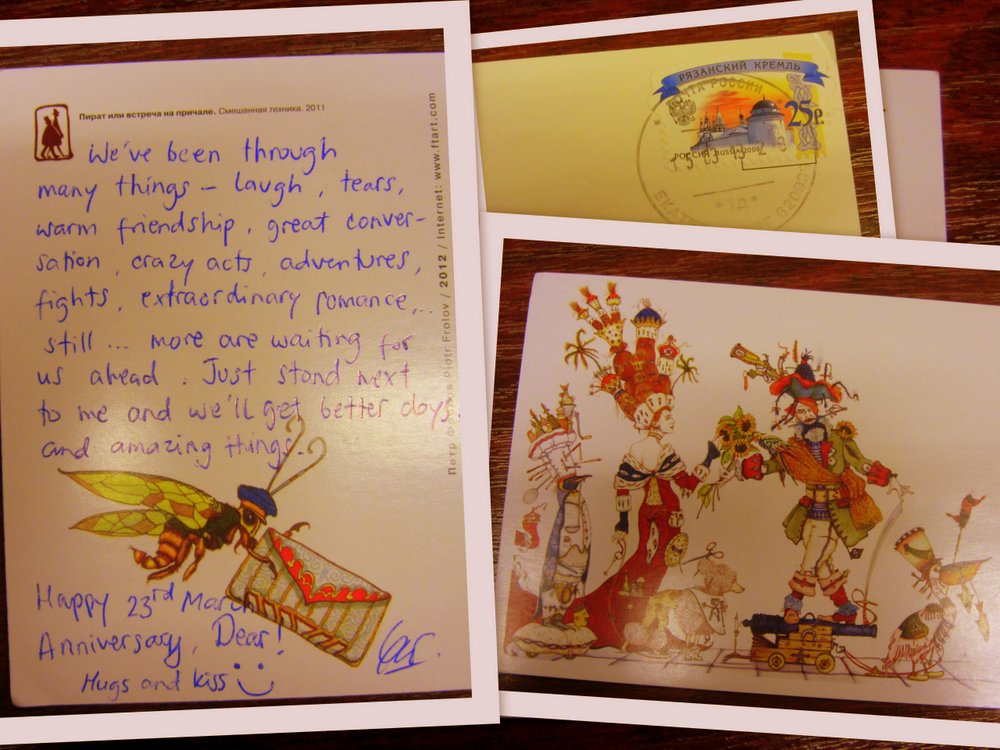 Пират или встреча на причале. Смешанная техника. 2011
We've been through
many things – laugh, tears,
warm friendship, great conver-
sation, crazy acts, adventures,
fights, extraordinary romance,..
still... more are waiting for
us ahead. Just stand next
to me and we'll get better days
and amazing things.
Happy 23rd March
Anniversary, Dear!
Hugs and kiss
Петр Piotr Frolov / 2012 / Internet: www.ftart.com
РЯЗАНСКИЙ КРЕМЛЬ
25р.
РОССИЯ RUSSIA 2009
ПОЧТА РОССИИ